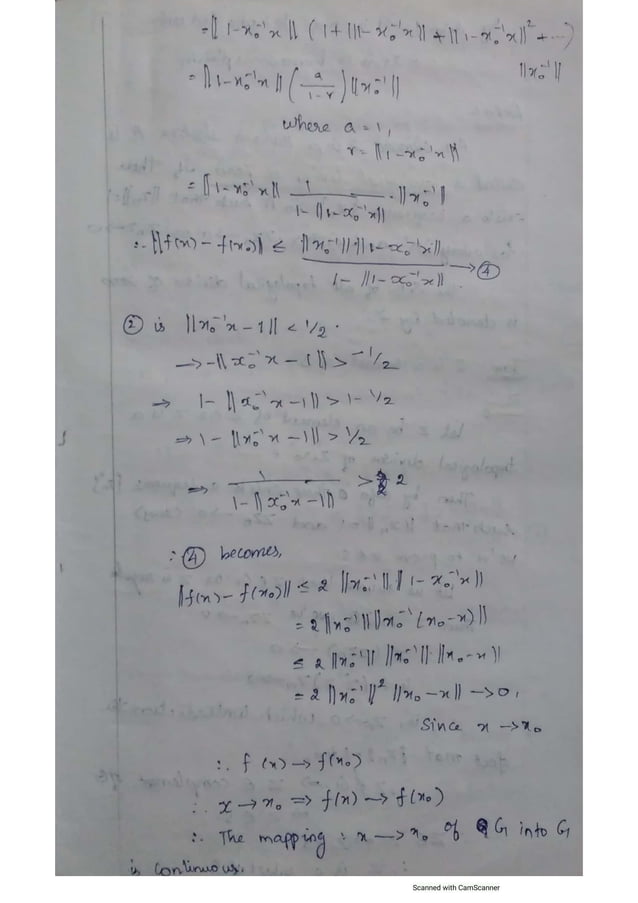 =‖1-x₀⁻¹x‖ (1+‖1-x₀⁻¹x‖+‖1-x₀⁻¹x‖²+...)
‖x₀⁻¹‖
= ‖1-x₀⁻¹x‖ (a/1-r) ‖x₀⁻¹‖
where a=1,
r=‖1-x₀⁻¹x‖
= ‖1-x₀⁻¹x‖ 1/1-‖1-x₀⁻¹x‖ · ‖x₀⁻¹‖
∴ ‖f(x)-f(x₀)‖ ≤ ‖x₀⁻¹‖ ‖1-x₀⁻¹x‖/1-‖1-x₀⁻¹x‖ → ④
② is ‖x₀⁻¹x-1‖ < 1/2.
→ -‖x₀⁻¹x-1‖ > -1/2
⇒ 1-‖x₀⁻¹x-1‖ > 1-1/2
⇒ 1-‖x₀⁻¹x-1‖ > 1/2
⇒ 1/1-‖x₀⁻¹x-1‖ > 2
∴ ④ becomes,
‖f(x)-f(x₀)‖ ≤ 2 ‖x₀⁻¹‖ ‖1-x₀⁻¹x‖
= 2‖x₀⁻¹‖ ‖x₀⁻¹(x₀-x)‖
≤ 2 ‖x₀⁻¹‖ ‖x₀⁻¹‖ ‖x₀-x‖
= 2 ‖x₀⁻¹‖² ‖x₀-x‖ → 0,
Since x → x₀
∴ f(x) → f(x₀)
∴ x → x₀ ⇒ f(x) → f(x₀)
∴ The mapping : x → x₀ of G into G
is continuous.
Scanned with CamScanner